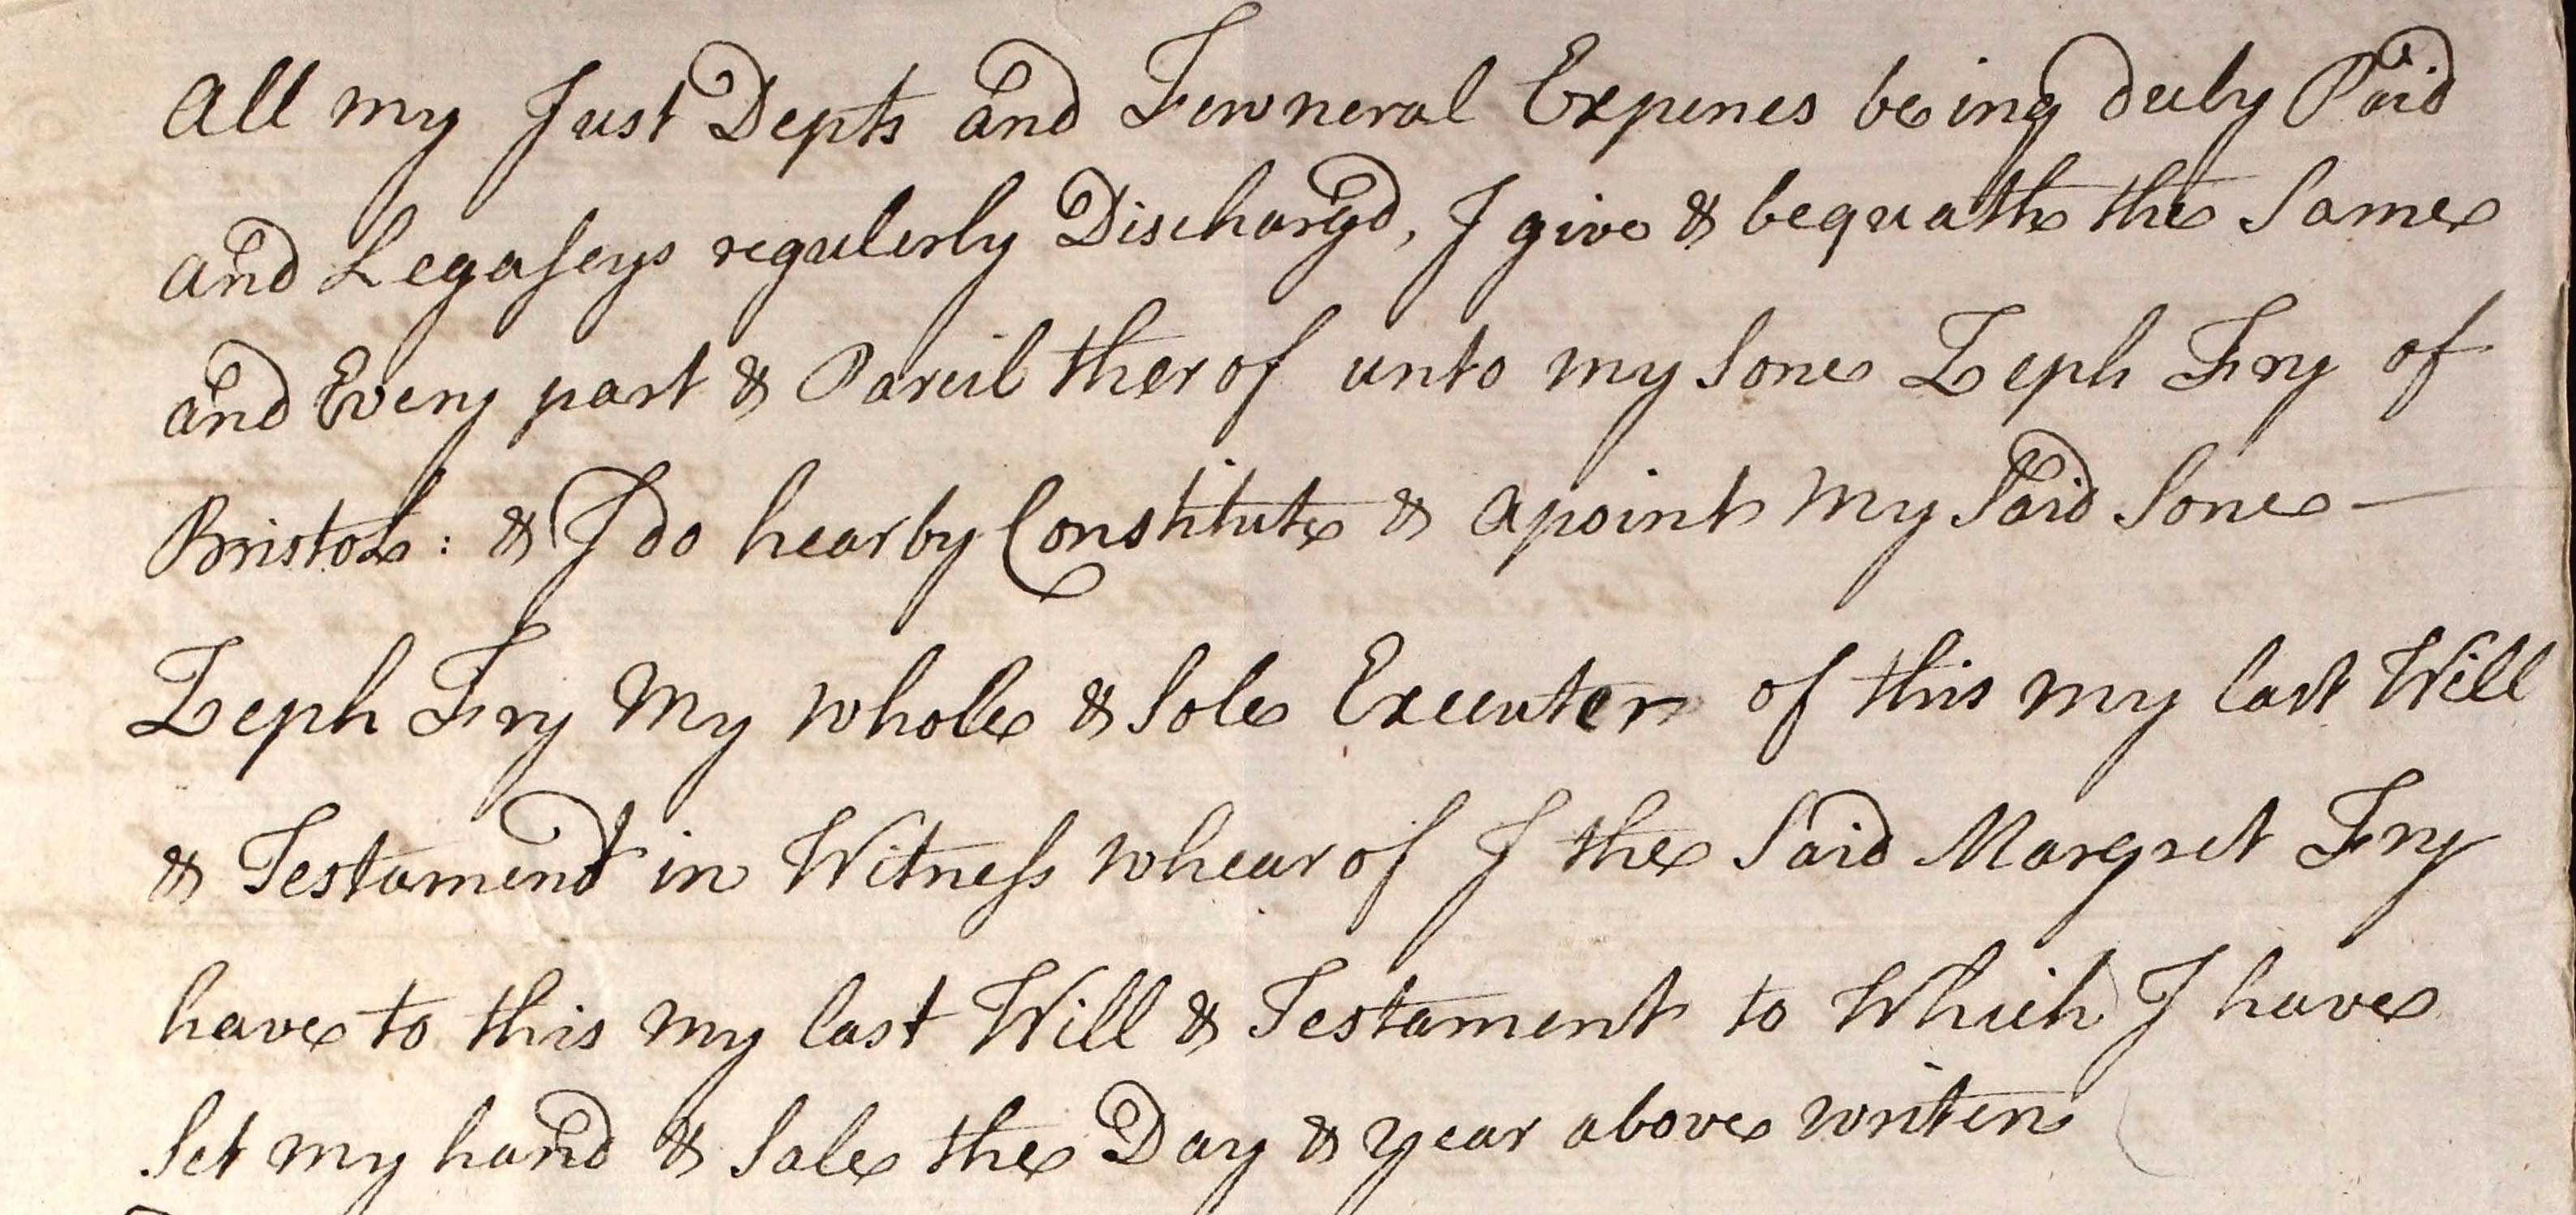 All my Just Depts and Fewneral Expenes being duly Paid
and Legaseys regulerly Dischargd, I give & bequath the Same
and Every part & Parcil therof unto my Sone Zeph Fry of
Bristol : & I do hearby Constitute & apoint my Said Sone —
Zeph Fry my whole & Sole Executer of this my last Will
& Testament in Witness whearof I the Said Margret Fry
have to this my last Will & Testament to Which I have
Set my hand & Sale the Day & year above writen